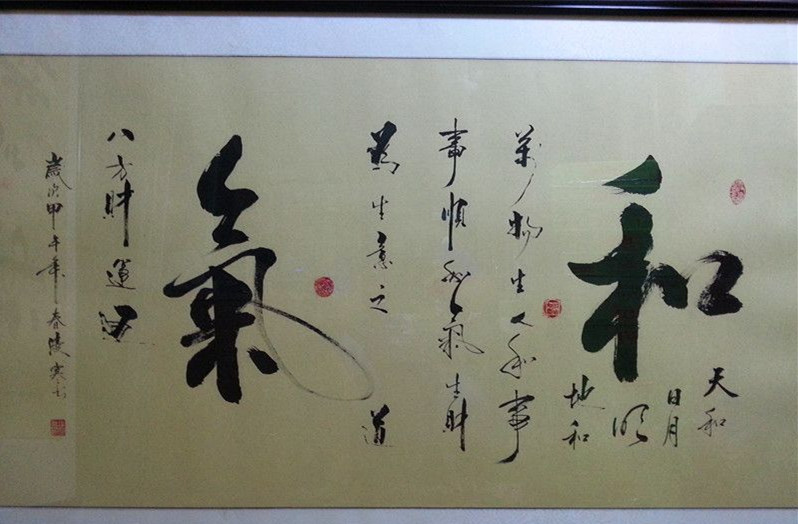 和
天和
日月
明
地和
萬物生人和事
事順和氣生財
為生意之
道
氣
八方財運
歲次甲午年春陵寒書